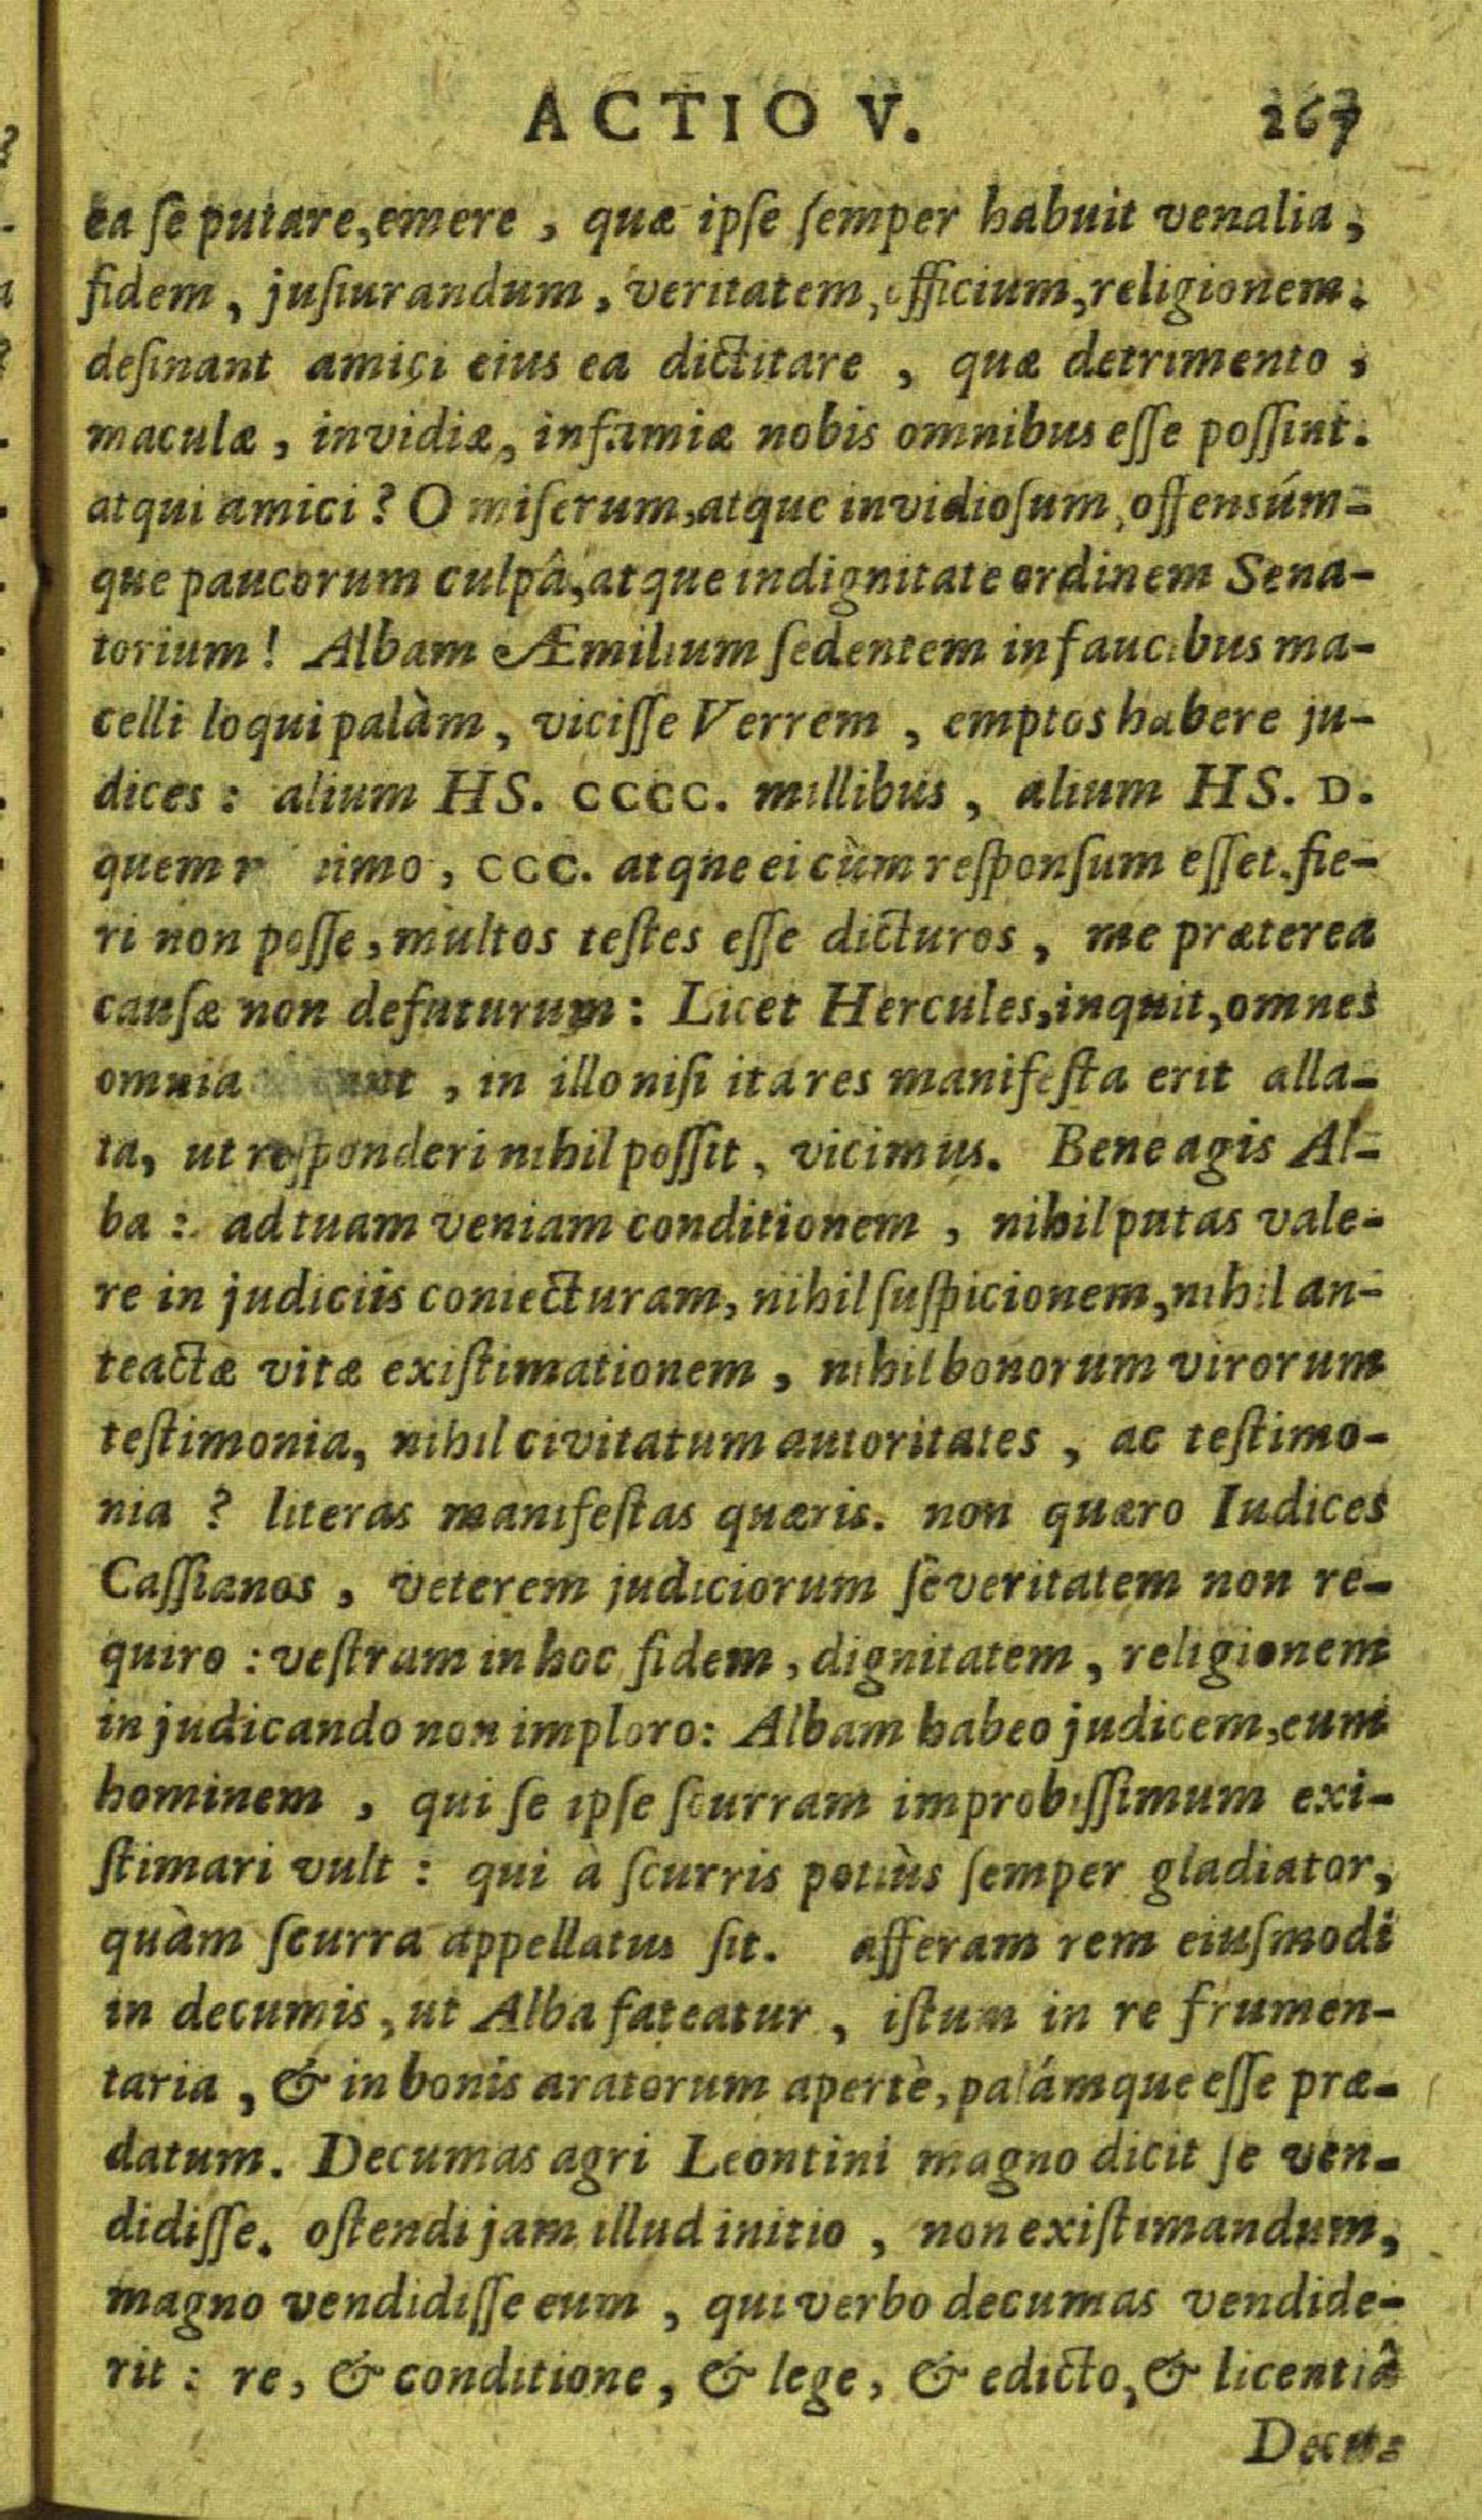 ACTIO V. 267
ea ſe putare, emere, quæ ipſe ſemper habuit venalia,
fidem, juſiurandum, veritatem, officium, religionem.
deſinant amici eius ea dictitare, quæ detrimento,
maculæ, invidiæ, infamiæ nobis omnibus eſſe poſſint.
atqui amici? O miſerum, atque invidioſum, offensúm-
que paucorum culpâ, atque indignitate ordinem Sena-
torium! Albam Æmilium ſedentem in faucibus ma-
celli loqui palàm, viciſſe Verrem, emptos habere ju-
dices: alium HS. CCCC. millibus, alium HS. D.
quem, CCC. atqne ei cùm reſponſum eſſet. fie-
ri non poſſe, multos teſtes eſſe dicturos, me præterea
cauſæ non defuturum: Licet Hercules, inquit, omnes
omnia, in illo niſi ita res manifeſta erit alla-
ta, ut reſponderi nihil poſſit, vicimus. Bene agis Al-
ba: ad tuam veniam conditionem, nihil putas vale-
re in judiciis coniecturam, nihil ſuſpicionem, nihil an-
teactæ vitæ exiſtimationem, nihil bonorum virorum
teſtimonia, nihil civitatum autoritates, ac teſtimo-
nia? literas manifeſtas quæris. non quæro Iudices
Caſſianos, veterem judiciorum ſeveritatem non re-
quiro: veſtram in hoc fidem, dignitatem, religionem
in judicando non imploro: Albam habeo judicem, eum
hominem, qui ſe ipſe ſcurram improbiſſimum exi-
ſtimari vult: qui à ſcurris potiùs ſemper gladiator,
quàm ſcurra appellatus ſit. afferam rem eiuſmodi
in decumis, ut Alba fateatur, iſtum in re frumen-
taria, & in bonis aratorum apertè, palámque eſſe præ-
datum. Decumas agri Leontini magno dicit ſe ven-
didiſſe. oſtendi jam illud initio, non exiſtimandum,
magno vendidiſſe eum, qui verbo decumas vendide-
rit: re, & conditione, & lege, & edicto, & licentiâ
Decu-